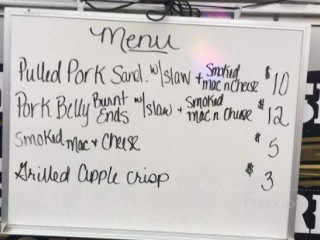 Menu
Pulled Pork Sand w/slaw + Smoked mac n Cheese $10
Pork Belly Burnt Ends w/slaw + Smoked mac n Cheese $12
Smoked Mac + Cheese $5
Grilled apple crisp $3